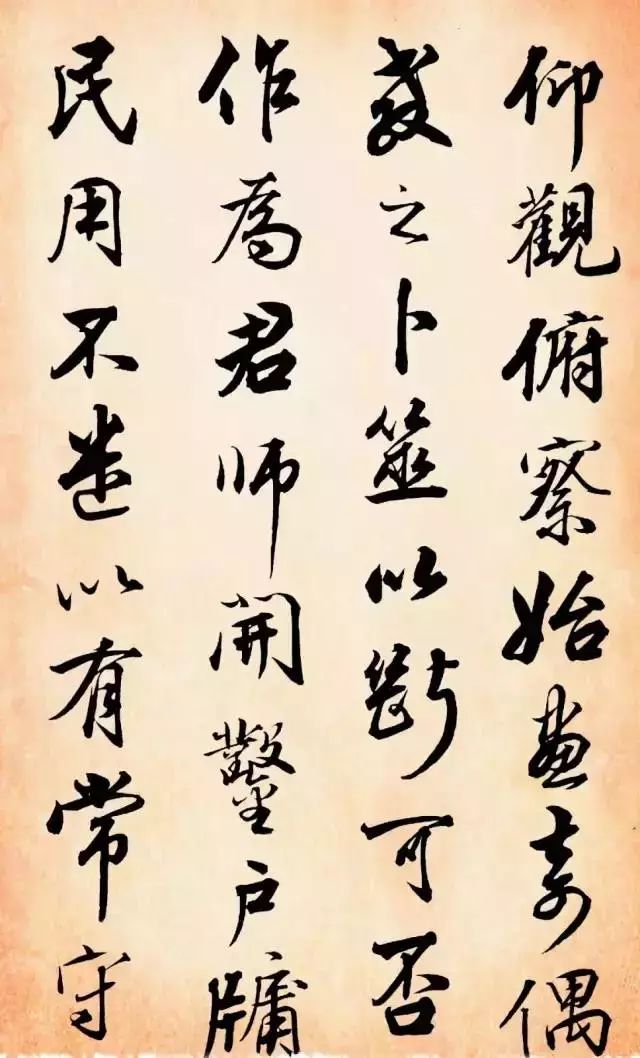 仰觀俯察始畫奇偶
教之卜筮以斷可否
作為君師開鑿戶牖
民用不迷以有常守